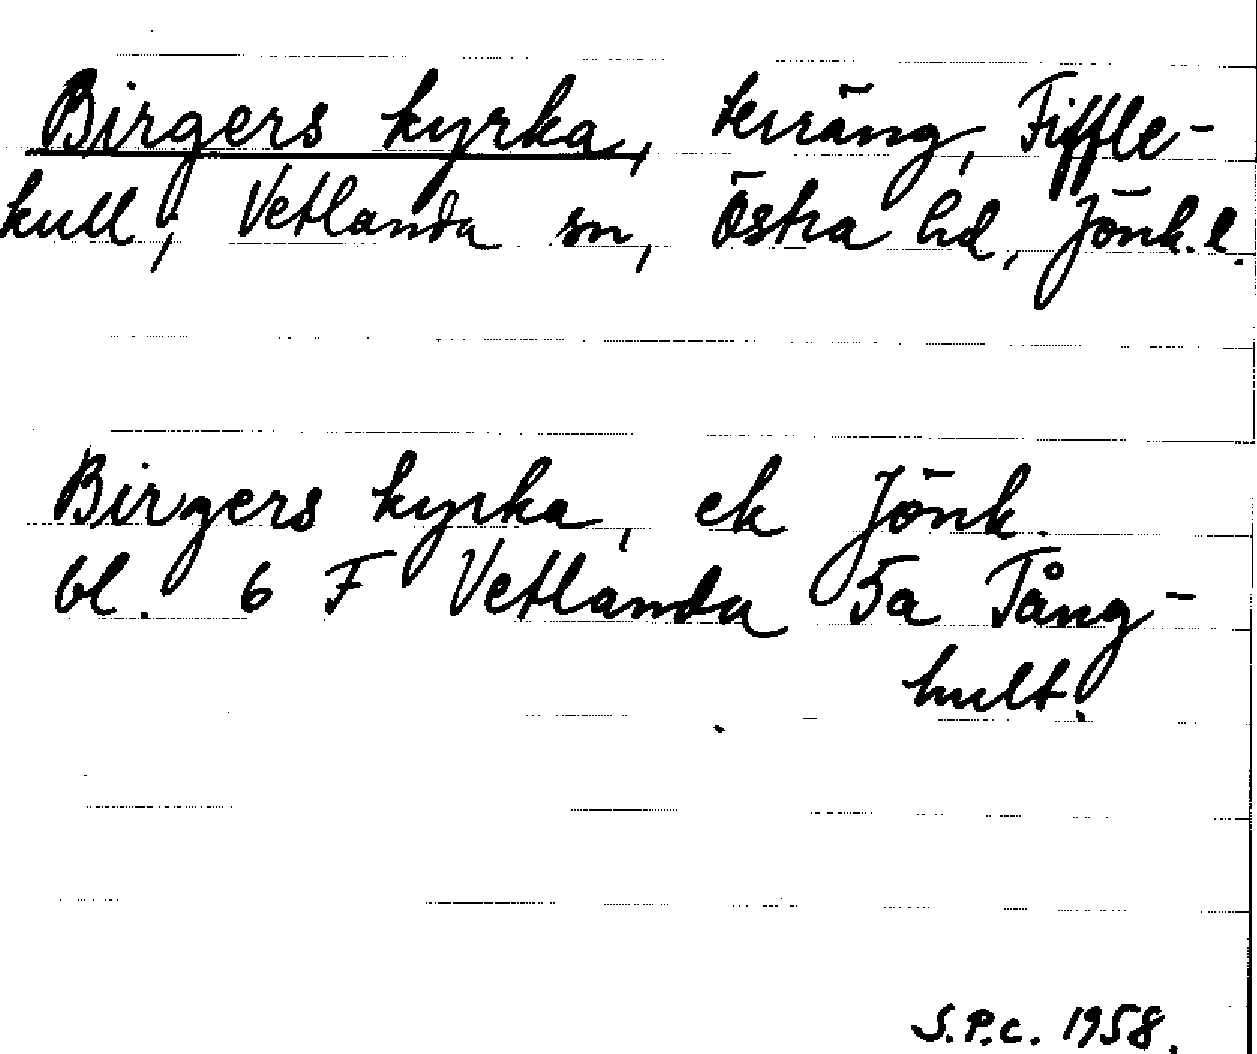 Birgers kyrka, terräng, Fiffle-
kull, Vetlanda sn, Östra hd, Jönk. l.
Birgers kyrka, ek Jönk.
bl. 6 F Vetlanda 5a Tång-
hult.
S.P.C. 1958.